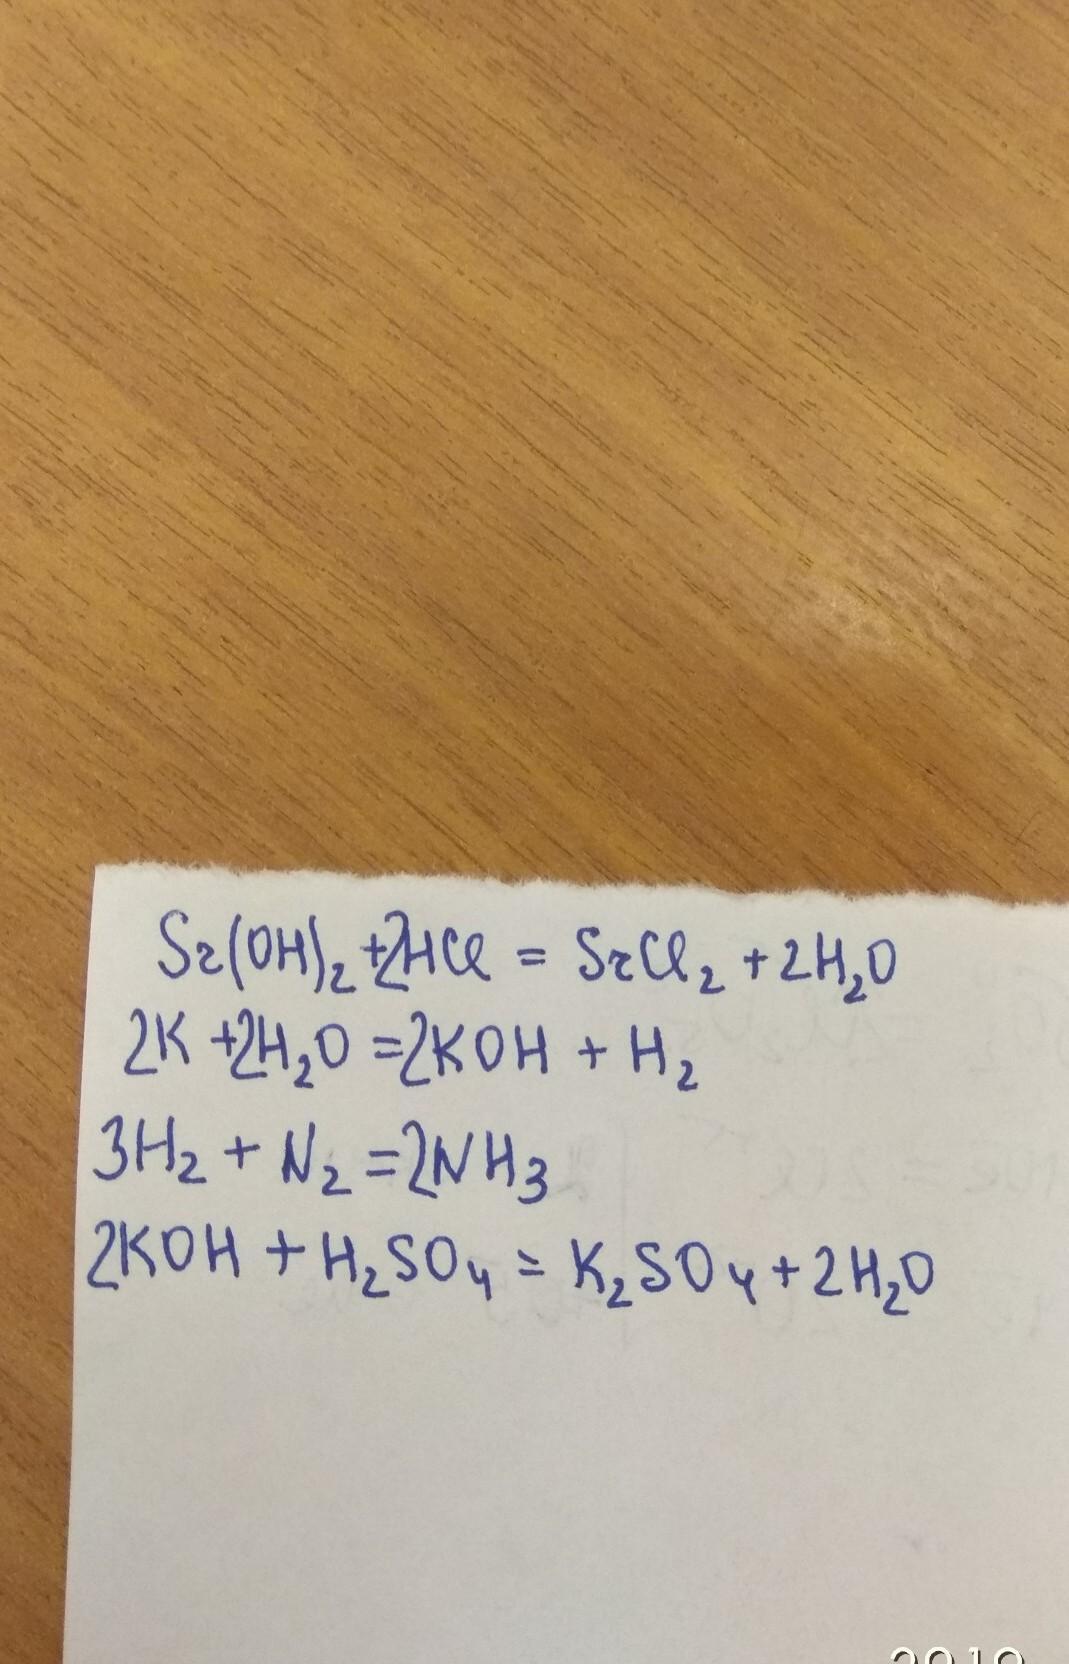 Sr(OH)₂ + 2HCl = SrCl₂ + 2H₂O
2K + 2H₂O = 2KOH + H₂
3H₂ + N₂ = 2NH₃
2KOH + H₂SO₄ = K₂SO₄ + 2H₂O